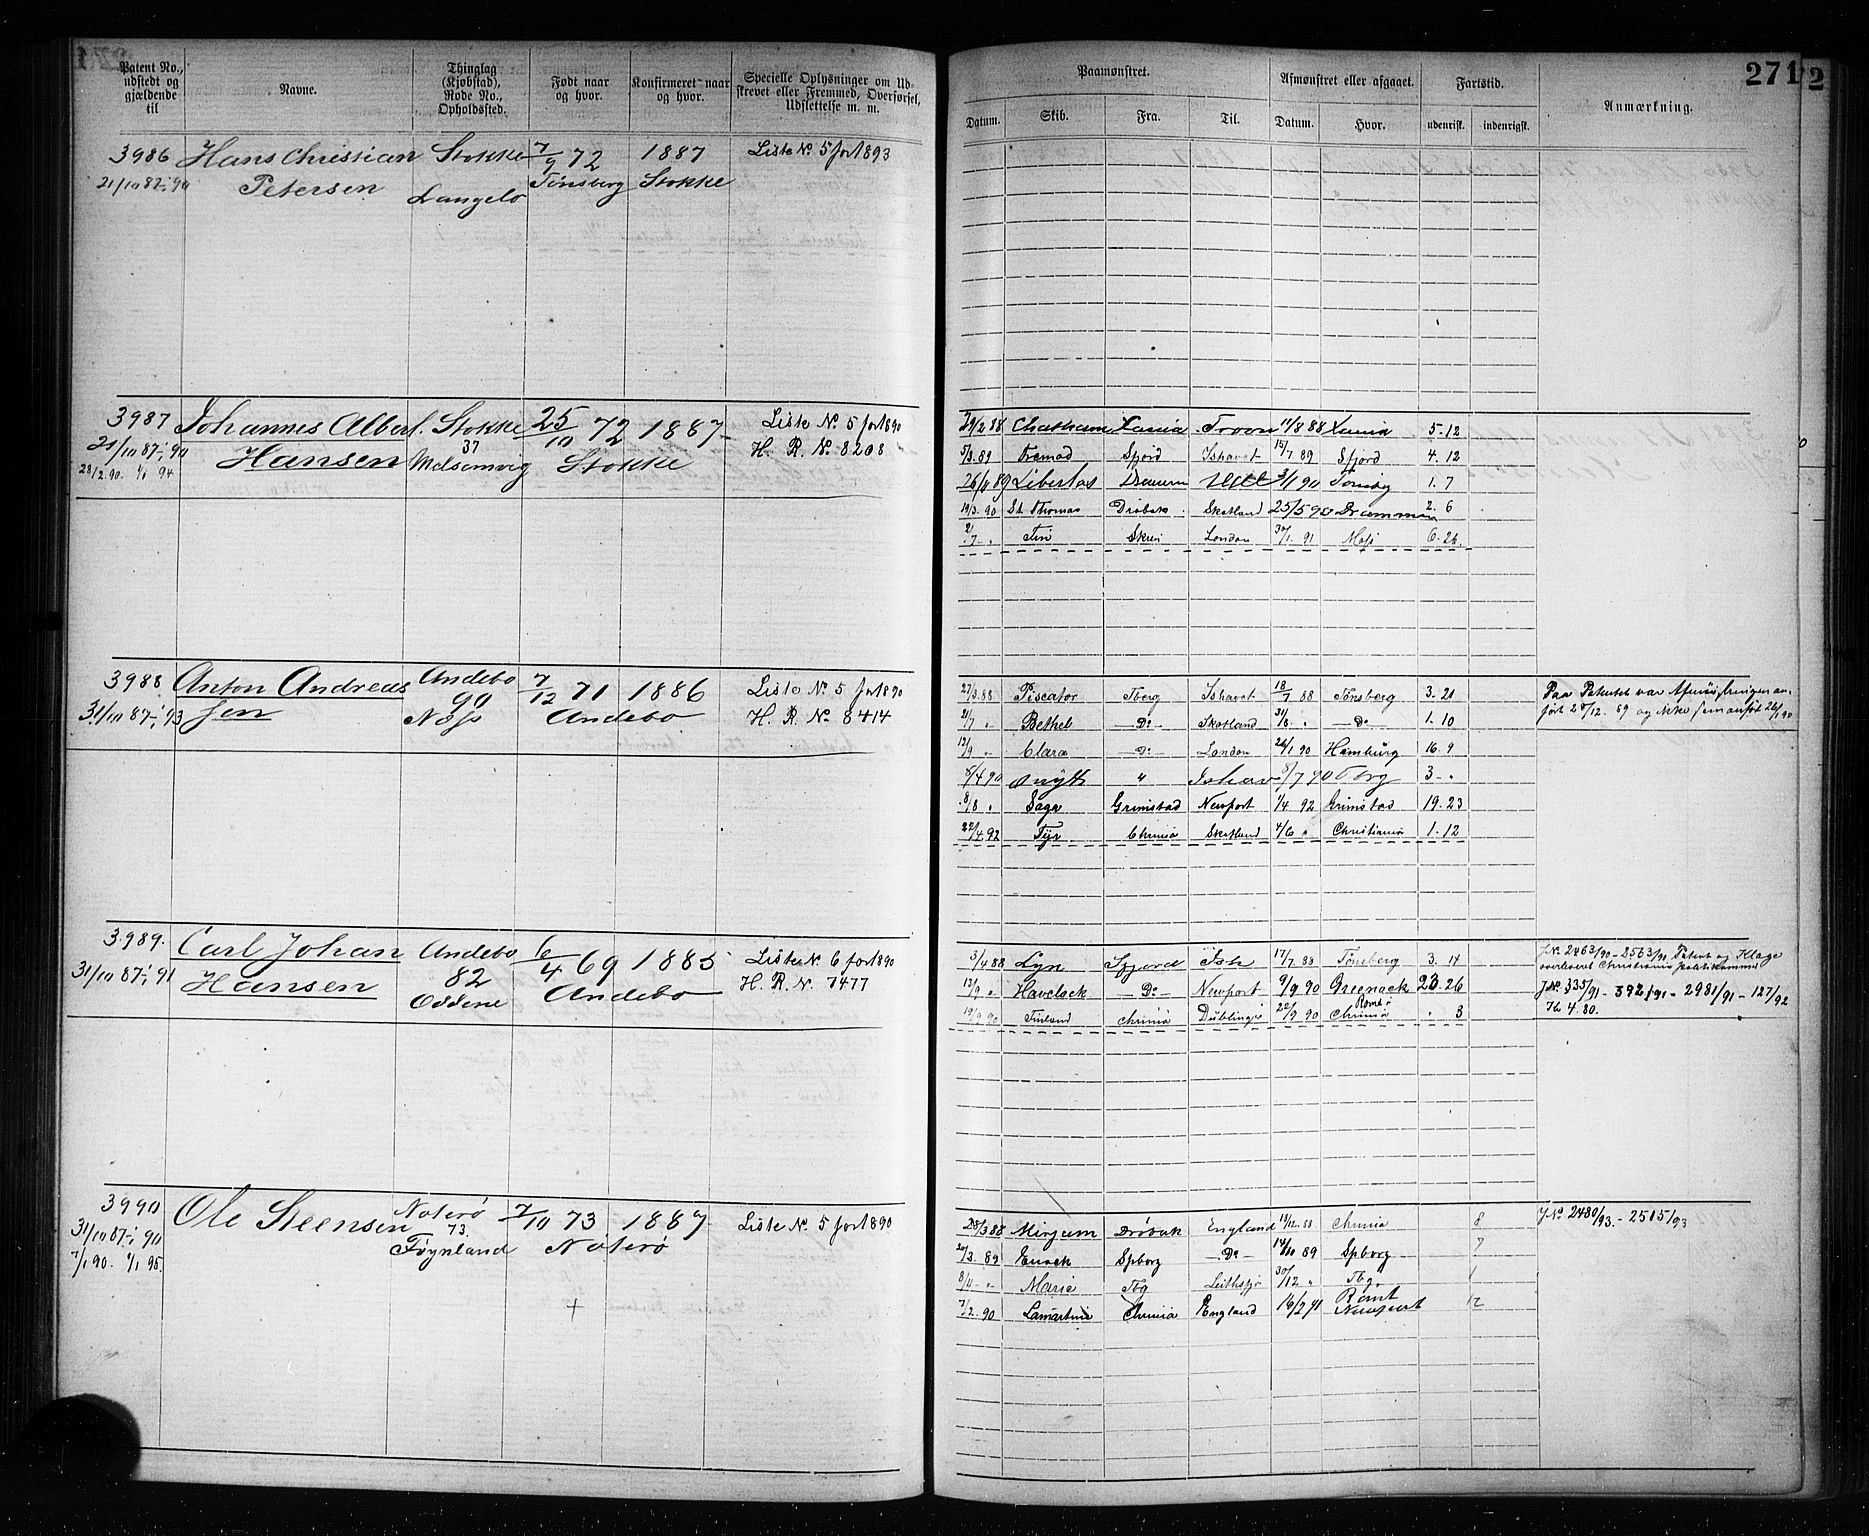 Patent No., udstedt og gjældende til
Navne.
Thinglag (Kjøbstad), Rode No., Opholdssted.
Født naar og hvor.
Konfirmeret naar og hvor.
Specielle Oplysninger om Udskrevet eller Fremmed, Overførsel, Udslettelse m. m.
Paamønstret.
Afmønstret eller afgaaet.
Fartstid.
Anmærkning.
271
2
Datum.
Skib.
Fra.
Til.
Datum.
Hvor.
udenrisk.
indenrigsk.
3986 Hans Christian Stokke 7/9 72 1887 Liste No 5 for 1893
21/10 87-1/1 90 Petersen Langelø Tønsberg Stokke
3987 Johannes Albert Stokke 25/10 72 1887 Liste No 5 for 1890
21/10 87-1/1 90 Hansen 37 Melsomvig Stokke H. R. No 8208
28/2 90. 1/1 94
29/2 88 Chatham Xania Troon 11/8 88 Xania 5. 12
5/3 89 Fremad Sfjord Ishavet 15/7 89 Sfjord 4. 12
26/11 89 Libertas Dramm 3/1 90 Tønsbg 1. 7
19/3. 90 St Thomas Drøbak Skotland 25/5 90 Drammen 2. 6
2/7 - . Skien London 30/1. 91 Moss 6. 26.
3988 Anton Andreas Andebo 7/12 71 1886 Liste No 5 for 1890
31/10 87-1/1 93 sen 90 Andebo H. R. No 8414
27/3. 88 Piscator Tberg Ishavet 18/7 88 Tønsberg 3. 21
21/7 " Bethel - Do - Skotland 31/8 " - Do - 1. 10
12/9 " Clara - Do - London 26/1 90 Hamburg 16. 9
8/4 90 " Ishav 8/7 90 Tbrg 3 - "
8/8 " Saga Grimstad Newport 1/4 92 Grimstad 19. 23
22/4 92 Tyr Chrnia Skotland 4/6 " Christiania 1. 12
Paa Patentet var Afmønstringen an-
ført 28/12. 89 og ikke som anført 26/1 90
3989. Carl Johan Andebo 6/4 69 1885 Liste No 6 for 1890
31/10 87-1/1 91 Hansen 82 Oddene Andebo H. R. No 7477
3/4 88 Lyn Sfjord Ish 17/7 88 Tønsberg 3. 14
12/9 " Havelock - Do - Newport 9/9 90 Greenock 23. 26
19/9 90 Finland Chrnia Dublin 22/9 90 Rømt Chrnia " 3
J.No 2463/90 - 2563/90 Patent og Klage
overleveret Christiania Politikammer
J.No 335/91 - 392/91 - 2981/91 - 127/92
Kr 4.80.
3990 Ole Steensen Nøterø 7/10 73 1887 Liste No. 5 for 1890
31/10 87-1/1 90 73. Føynland Nøterø
7/1 90. 1/1 95.
28/3 88 Mirjam Drøbak England 19/12. 88 Chrnia 8
20/3. 89 Enack Spborg - Do - 14/10 89 Spborg 7
8/11 - " Marie Tbg 30/12 " Tbg. 1
7/2. 90 Lamartine Chrnia England 16/2 91 Rømt Newport 12
J.No 2480/93. - 2515/93